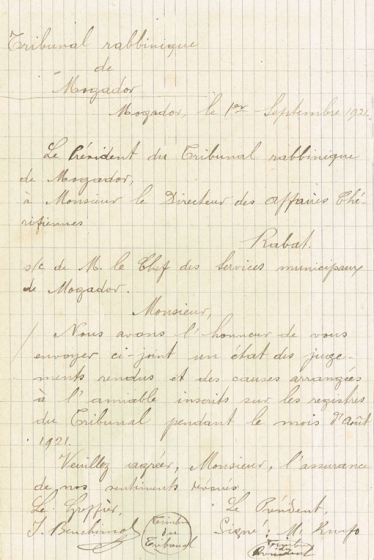 Tribunal rabbinique
de
Mogador
Mogador, le 1er Septembre 1921.
Le Président du Tribunal rabbinique
de Mogador,
à Monsieur le Directeur des affaires Ché-
rifiennes
Rabat.
s/c de M. le Chef des Services municipaux
de Mogador.
Monsieur,
Nous avons l'honneur de vous
envoyer ci-joint un état des juge-
ments rendus et des causes arrangées
à l'amiable inscrits sur les registres
du Tribunal pendant le mois d'Août
1921.
Veuillez agréer, Monsieur, l'assurance
de nos sentiments dévoués.
Le Greffier, Le Président,
Signé: M.
Timbre
du
Tribunal
Timbre
du
Président